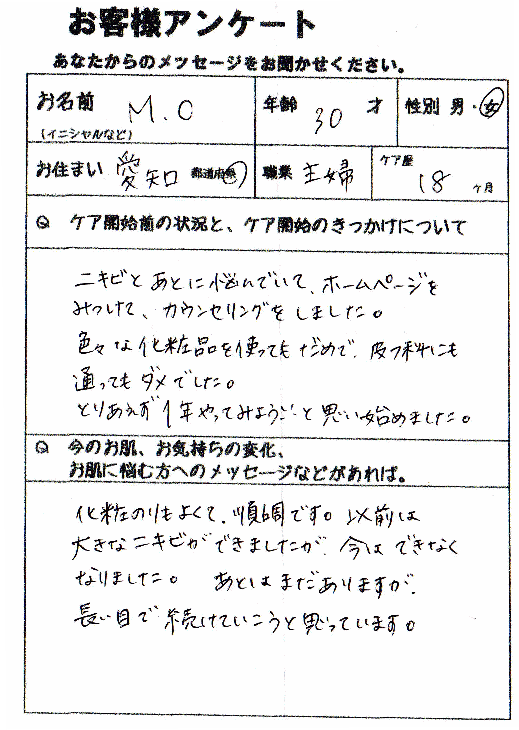 お客様アンケート
あなたからのメッセージをお聞かせください。
お名前 (イニシャルなど) M.O 年齢 30 才 性別 男・女
お住まい 愛知 都道府県 職業 主婦 ケア歴 18 ヶ月
Q ケア開始前の状況と、ケア開始のきっかけについて
ニキビとあとに悩んでいて、ホームページを
みつけて、カウンセリングをしました。
色々な化粧品を使ってもだめで、皮フ科にも
通ってもダメでした。
とりあえず1年やってみよう!と思い始めました。
Q 今のお肌、お気持ちの変化、
お肌に悩む方へのメッセージなどがあれば。
化粧のりもよくて、順調です。以前は
大きなニキビができましたが、今はできなく
なりました。 あとはまだありますが、
長い目で続けていこうと思っています。